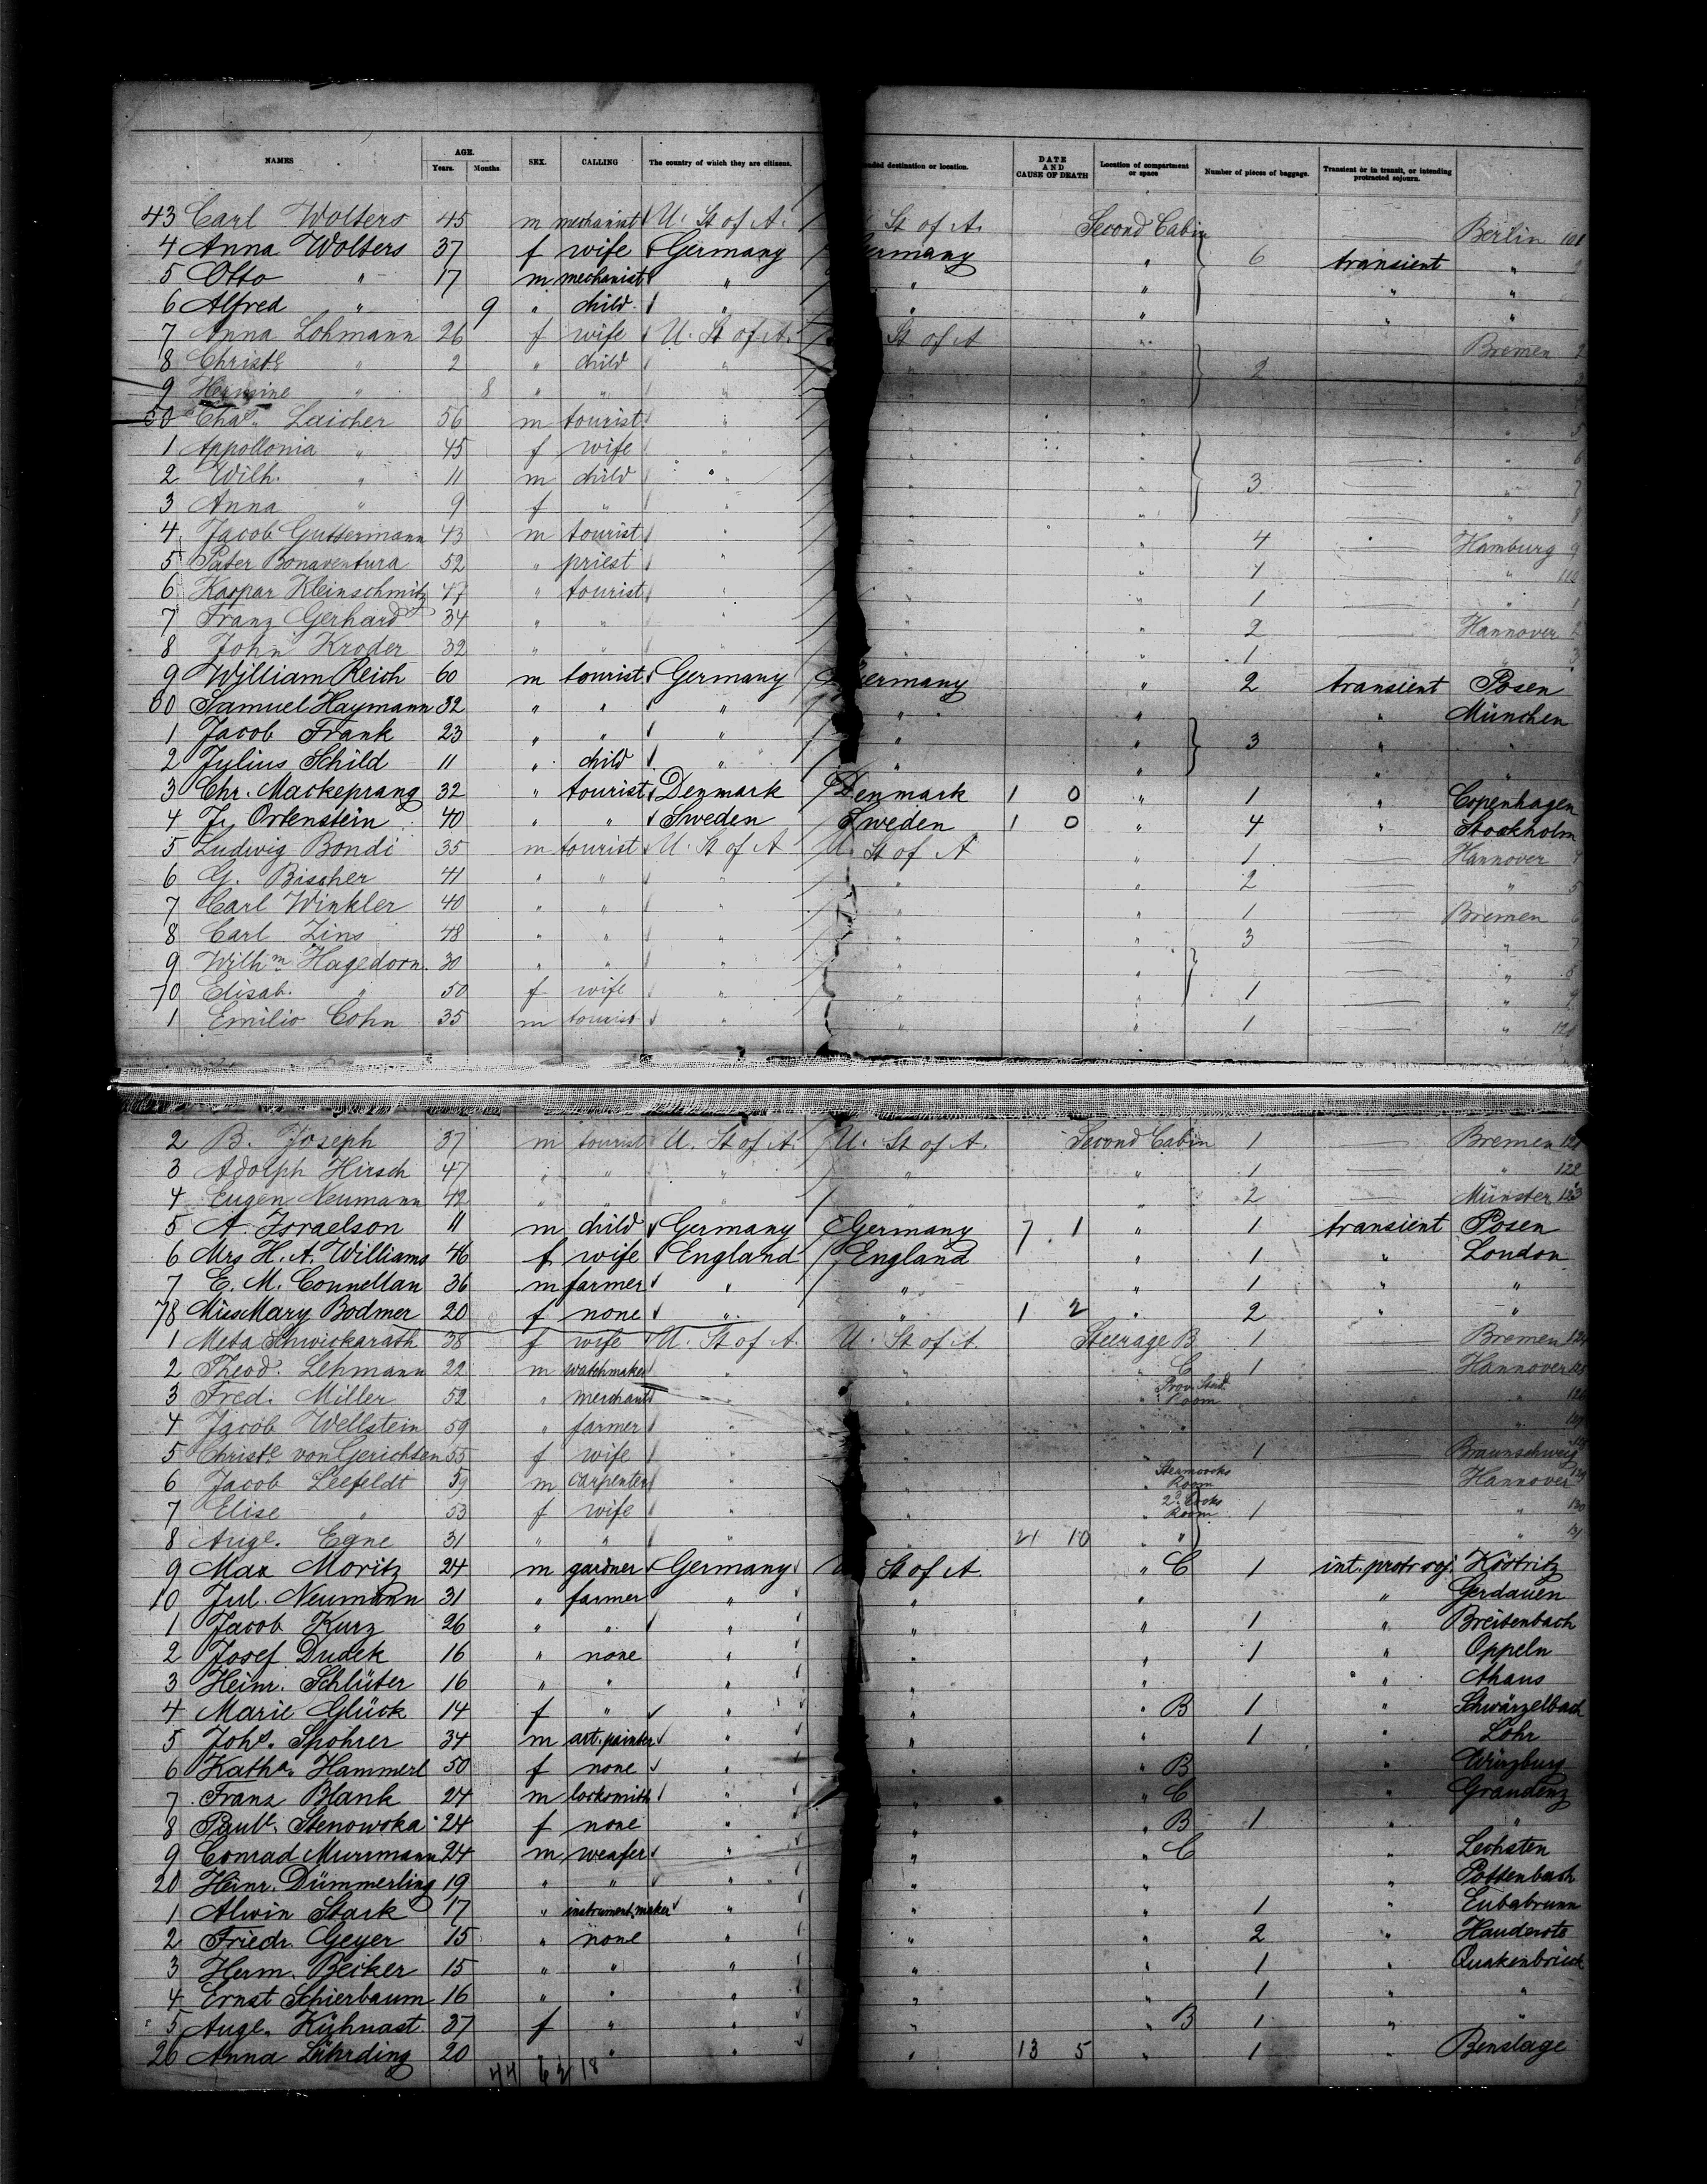 NAMES AGE. Years. Months. SEX. CALLING The country of which they are citizens. nded destination or location. DATE AND CAUSE OF DEATH Location of compartment or space Number of pieces of baggage. Transient or in transit, or intending protracted sojourn.
43 Carl Wolters 45 m mechanist U. St of A. St of A. Second Cabin Berlin 101
4 Anna Wolters 37 f wife Germany ermany " 6 transient " 2
5 Otto " 17 m mechanist " " " " "
6 Alfred " 9 " child " " " " "
7 Anna Lohmann 26 f wife U. St of A. St of A " Bremen 2
8 Christe " 2 " child " " " 2 3
9 Hermine " 8 " " " " "
50 Chas. Laicher 56 m tourist " " " " 5
1 Appollonia " 45 f wife " " " " 6
2 Wilh. " 11 m child " " " 3 " 7
3 Anna " 9 f " " " " " 8
4 Jacob Guttermann 43 m tourist " " " 4 Hamburg 9
5 Pater Bonaventura 52 " priest " " " 1 " 110
6 Kaspar Kleinschmitz 47 " tourist " " " 1 " 1
7 Franz Gerhard 34 " " " " " 2 Hannover 2
8 John Kroder 32 " " " " " 1 " 3
9 William Reich 60 m tourist Germany Germany " 2 transient Posen
60 Samuel Haymann 32 " " " " " " München
1 Jacob Frank 23 " " " " " 3 " "
2 Julius Schild 11 " child " " " " "
3 Chr. Mackeprang 32 " tourist Denmark Denmark 1 0 " 1 " Copenhagen
4 J. Ortenstein 40 " " Sweden Sweden 1 0 " 4 " Stockholm
5 Ludwig Bondi 35 m tourist U. St of A U. St of A " 1 Hannover 4
6 G. Bischer 41 " " " " " 2 " 5
7 Carl Winkler 40 " " " " " 1 Bremen 6
8 Carl Zins 48 " " " " " 3 " 7
9 Wilhm Hagedorn. 30 " " " " " " 8
70 Elisab. " 50 f wife " " " 1 " 9
1 Emilio Cohn 35 m tourist " " " 1 " 120
2 B. Joseph 37 m tourist U. St of A. U. St of A. Second Cabin 1 Bremen 121
3 Adolph Hirsch 47 " " " " " 1 " 122
4 Eugen Neumann 42 " " " " " 2 Münster 123
5 A. Israelson 11 m child Germany Germany 7 1 " 1 transient Posen
6 Mrs H. A. Williams 46 f wife England England " 1 " London
7 E. M. Connellan 36 m farmer " " " 1 " "
78 Miss Mary Bodmer 20 f none " " 1 2 " 2 " "
1 Meta Schwickarath 38 f wife U. St of A. U. St of A. Steerage B 1 Bremen 124
2 Theod. Lehmann 22 m watchmaker " " " C 1 Hannover 125
3 Fred. Miller 52 " merchant " " " Prov. Room " 126
4 Jacob Wellstein 59 " farmer " " " " "
5 Christe von Gerichten 55 f wife " " " 1 Braunschweig
6 Jacob Leefeldt 59 m carpenter " " " Room Hannover 129
7 Elise " 53 f wife " " " 2d Cooks Room 1 " 130
8 Auge. Egne 31 " " " " 21 10 " " " 131
9 Max Moritz 24 m gardner Germany St of A. " C 1 int. protr soj. Köstritz
10 Jul. Neumann 31 " farmer " " " " Gerdauen
1 Jacob Kurz 26 " " " " " 1 " Breitenbach
2 Josef Dudek 16 " none " " " 1 " Oppeln
3 Heinr. Schlüter 16 " " " " " " Ahaus
4 Marie Glück 14 f " " " " B 1 " Schwärzelbach
5 Johs. Spohrer 34 m art. painter " " " 1 " Lohr
6 Katha. Hammerl 50 f none " " " B " Würzburg
7 Franz Blank 24 m locksmith " " " C " Graudenz
8 Paule. Stenowska 24 f none " " " B 1 " "
9 Conrad Murrmann 24 m weafer " " " C " Lechsten
20 Heinr. Dümmerling 19 " " " " " " Pottenbach
1 Alwin Stark 17 " instrument maker " " " 1 " Eubabrunn
2 Friedr. Geyer 15 " none " " " 2 " Hauderote
3 Herm. Becker 15 " " " " " 1 " Quakenbrück
4 Ernst Schierbaum 16 " " " " " 1 " "
5 Auge. Kühnast 37 f " " " " B 1 " "
26 Anna Lührding 20 " " " 13 5 " 1 " Benstage
44 62 18